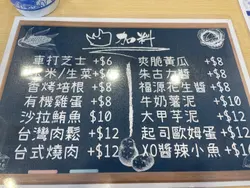 加料
車打芝士 +$6
玉米/生菜 +$6
香烤培根 +$8
有機雞蛋 +$8
沙拉鮪魚 $10
台灣肉鬆 +$12
台式燒肉 +$12
爽脆黃瓜 +$8
朱古力醬 +$8
福源花生醬 +$8
牛奶薯泥 +$12
大甲芋泥 +$12
起司歐姆蛋 +$12
XO醬辣小魚